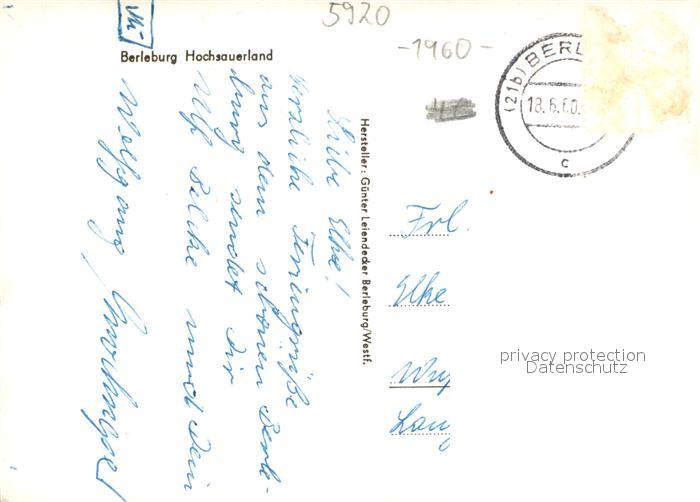 5920
-1960-
Berleburg Hochsauerland
(21b) BERL
18.6.60.
c
Liebe Elke!
Herzliche Feriengrüße
aus dem schönen Berle-
burg sendet Dir
Ulf und Dein
Wolfgang
Hersteller: Günter Leiendecker Berleburg/Westf.
Frl.
Elke
privacy protection
Datenschutz